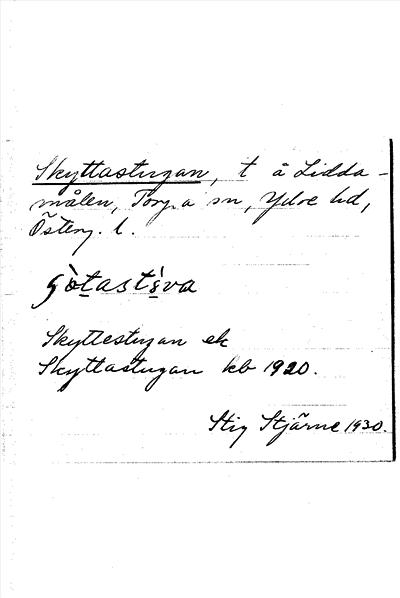 Skyttastugan, t å Lidda-
målen, Torpa sn, Ydre hd,
Österg. l.
Skyttestugan ek
Skyttastugan kb 1920.
Stig Stjärne 1930.